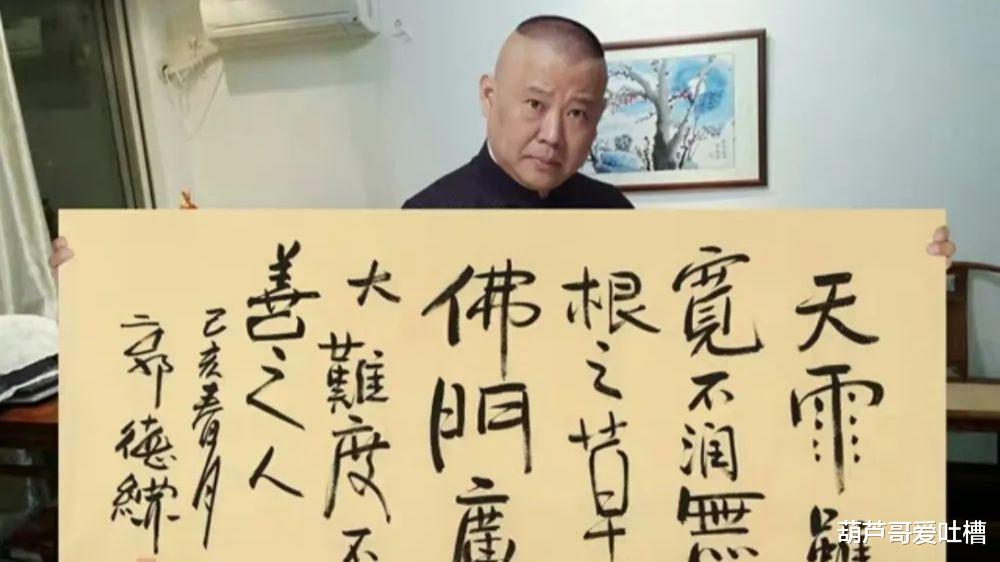 天雨雖
寬不润無
根之草
佛門廣
大難度不
善之人
己亥春月
郭德纲
葫芦哥爱吐槽